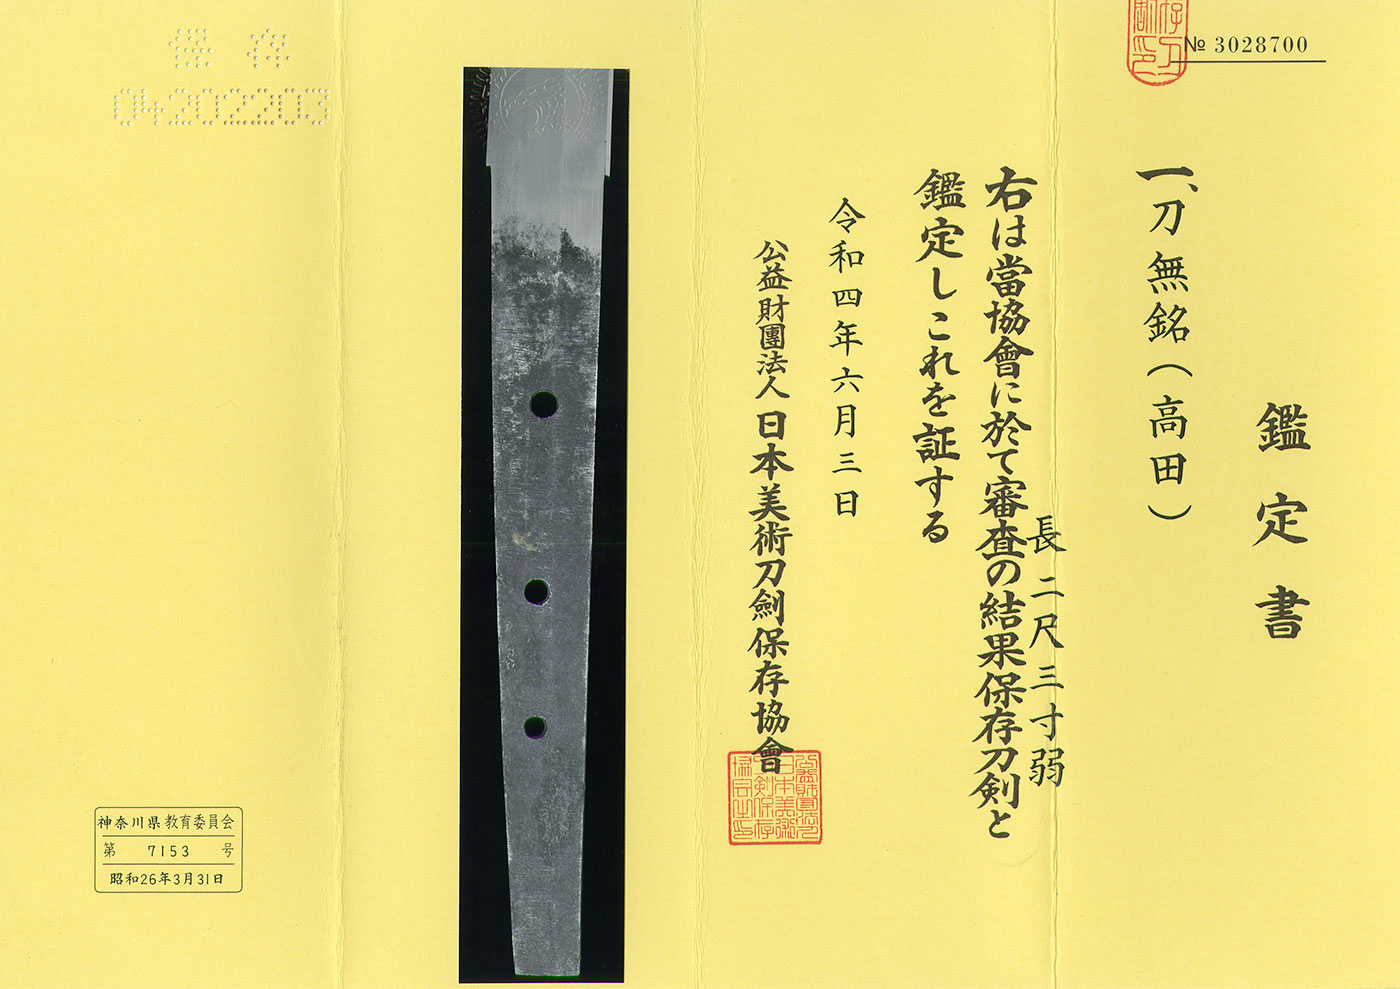 № 3028700
鑑定書
一、刀 無銘(高田)
長二尺三寸弱
右は當協會に於て審査の結果保存刀剣と
鑑定しこれを証する
令和四年六月三日
公益財團法人 日本美術刀劍保存協會
保存
04202203
神奈川県教育委員会
第 7153 号
昭和26年3月31日